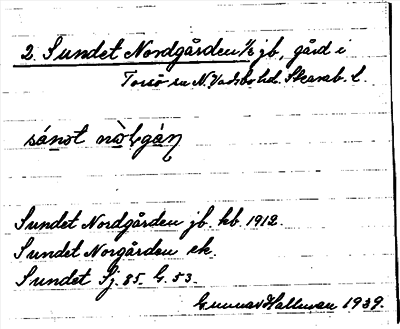 2. Sundet Nordgården 1/6 jb, gård i
Torsö sn N. Vadsbo hd. Skarab. l.
sánət nòlgàn
Sundet Nordgården jb. kb. 1912.
Sundet Norgården ek.
Sundet Sj. 85. G. 53.
Gunnar Hallman 1939.